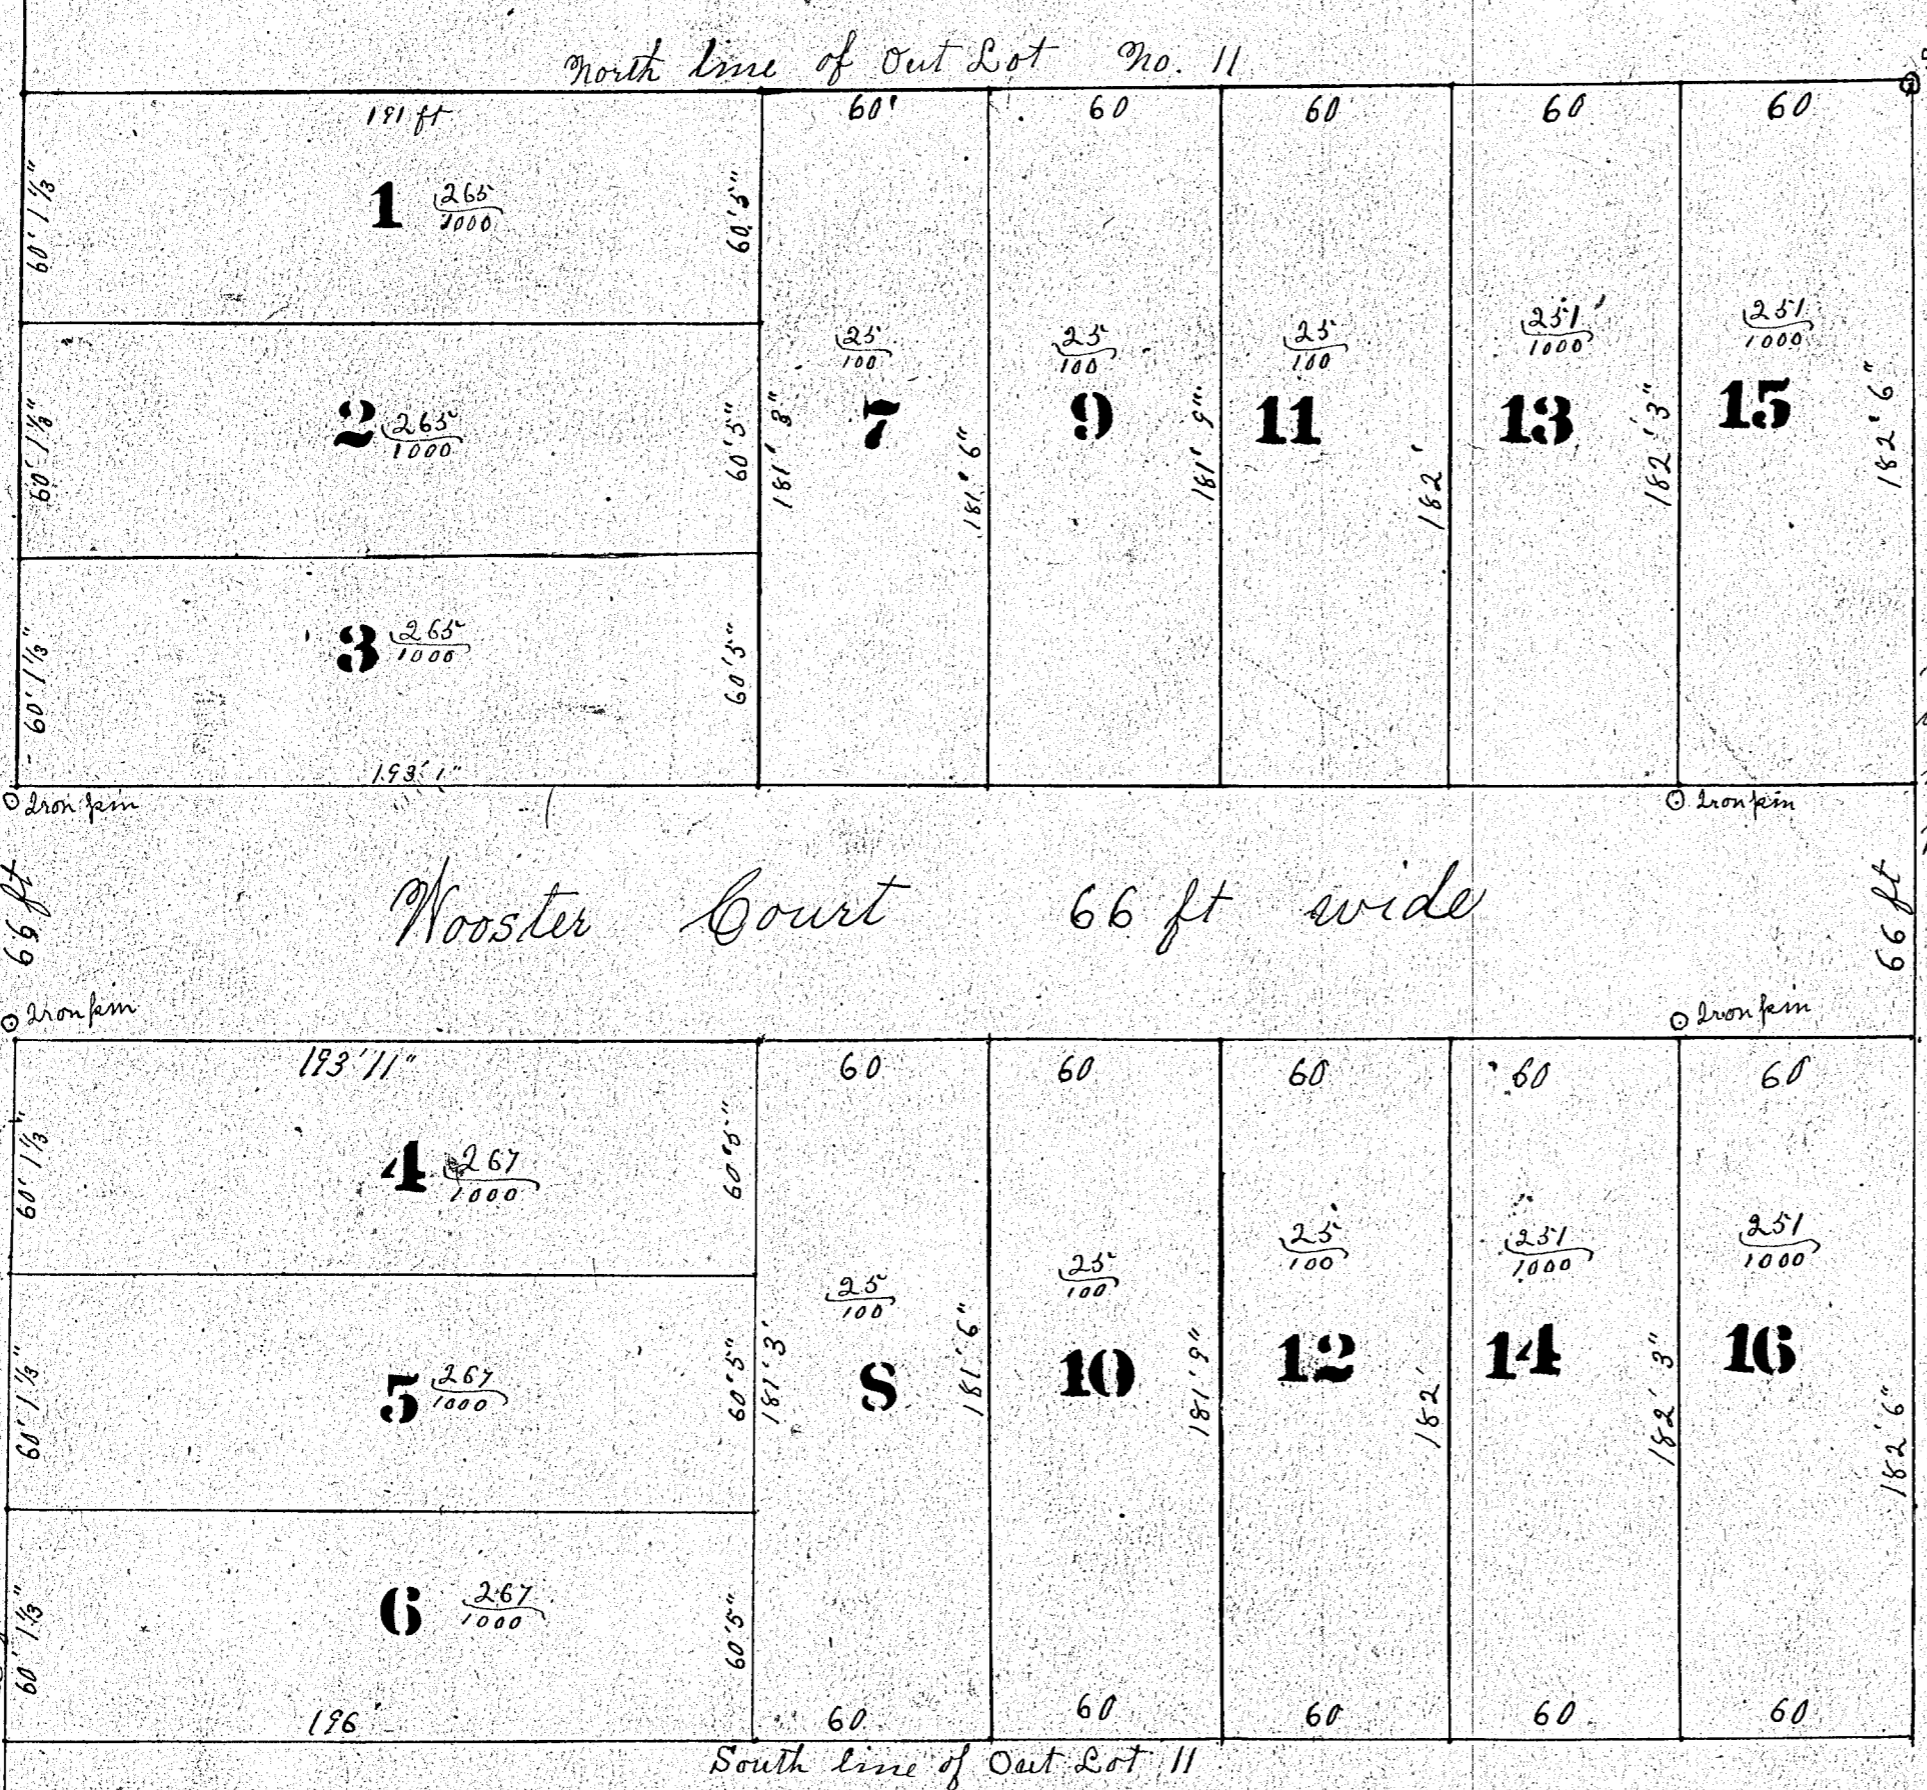 North line of Out Lot No. 11
191 ft
60'
60
60
60
60
60' 1 1/3"
1 265/1000
60' 5"
60' 1 1/3"
2 265/1000
60' 5"
60' 1 1/3"
3 265/1000
60' 5"
193' 1"
181' 3"
25/100
7
181' 6"
25/100
9
181' 9"
25/100
11
182'
251/1000
13
182' 3"
251/1000
15
182' 6"
Iron pin
Iron pin
66 ft
Wooster Court 66 ft wide
66 ft
Iron pin
Iron pin
193' 11"
60
60
60
60
60
60' 1 1/3"
4 267/1000
60' 5"
60' 1 1/3"
5 267/1000
60' 5"
60' 1 1/3"
6 267/1000
60' 5"
196
181' 3'
25/100
8
181' 6"
25/100
10
181' 9"
25/100
12
182'
251/1000
14
182' 3"
251/1000
16
182' 6"
60
60
60
60
60
South line of Out Lot 11